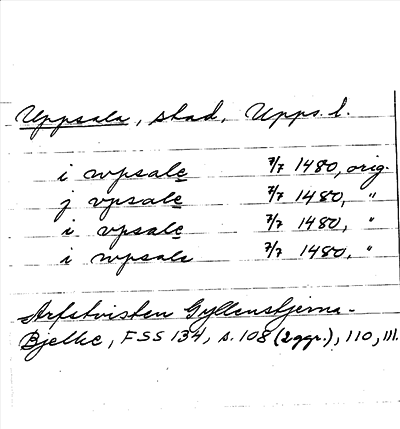 Uppsala, stad, Upps. l.
i wpsale 7/7 1480, orig.
j vpsale 7/7 1480, "
i vpsale 7/7 1480, "
i wpsale 7/7 1480, "
Arfstvisten Gyllenstjerna-
Bjelke, FSS 134, s. 108 (2 ggr.), 110, 111.